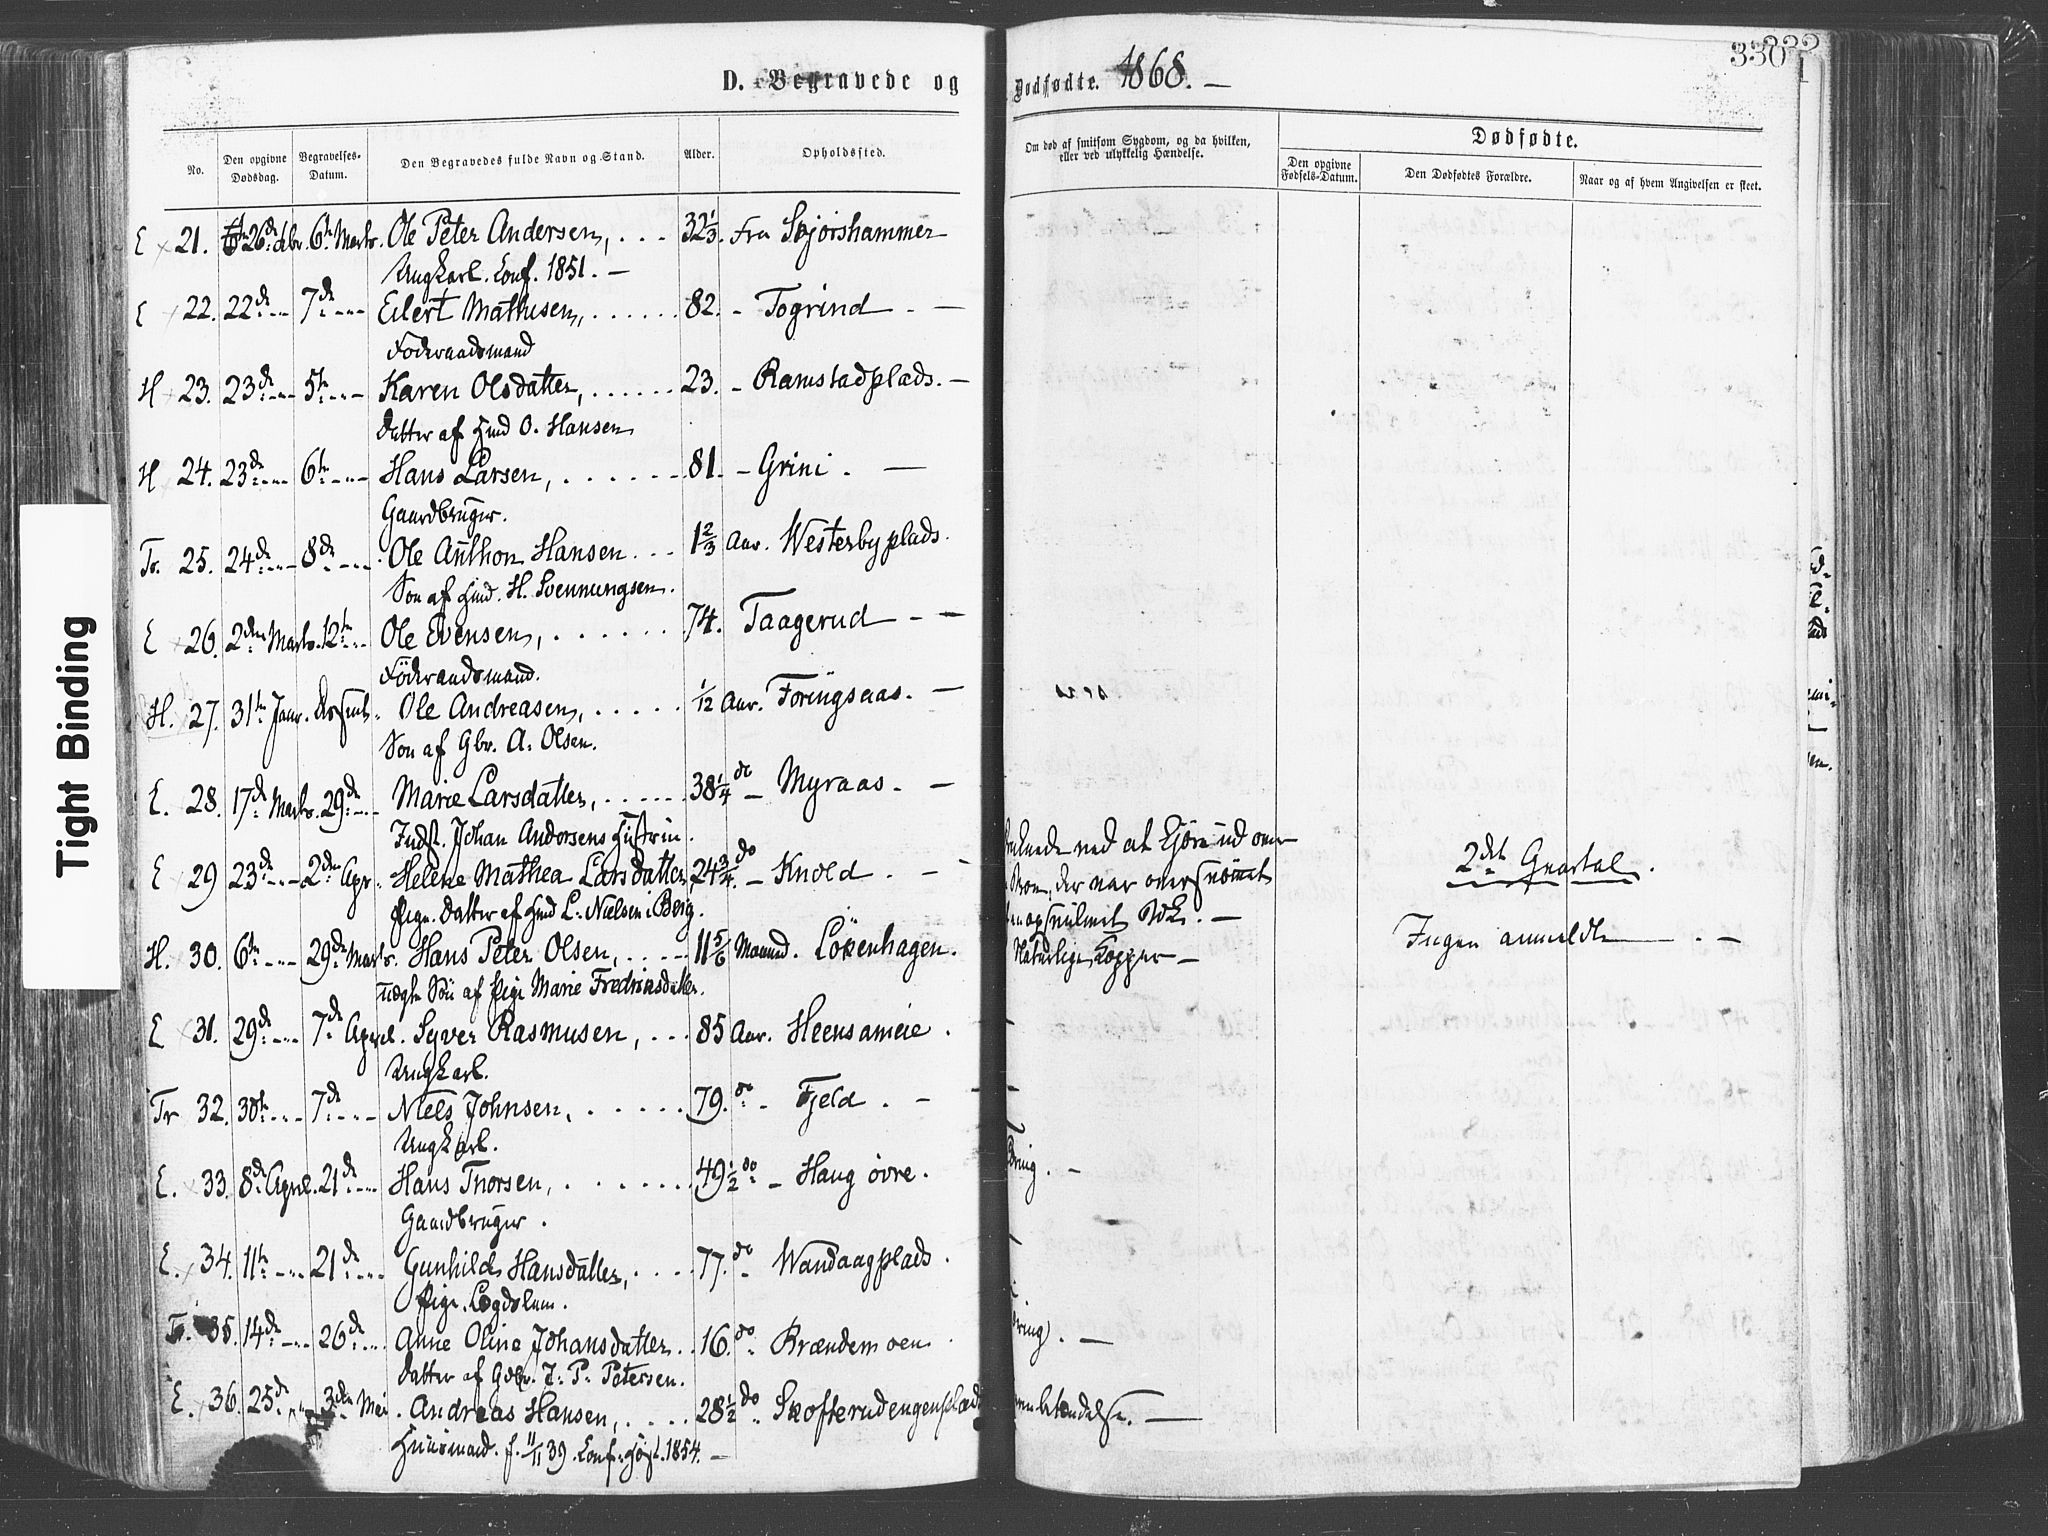 Tight Binding
D. Begravede og
Dødfødte. 1868. —
330
No.
Den opgivne Dødsdag.
Begravelses-Datum.
Den Begravedes fulde Navn og Stand.
Alder.
Opholdssted.
Om død af smitsom Sygdom, og da hvilken, eller ved ulykkelig Hændelse.
Dødfødte.
Den opgivne Fødsels-Datum.
Den Dødfødtes Forældre.
Naar og af hvem Angivelsen er skeet.
E 21. 26de 6te Marts. Ole Peter Andersen, . . . 32 1/3. Fra Skjørshammer
Ungkarl. Conf. 1851. —
E 22. 22de 7de Eilert Mathisen, . . . . . . 82. - Togrind - —
Föderaadsmand
H 23. 23de 5te Karen Olsdatter, . . . . . . 23. - Ramstadplads. —
Datter af Hmd O. Hansen
H 24. 23de 6te Hans Larsen, . . . . . . 81. - Grini . —
Gaardbruger.
Tr. 25. 24de 8de Ole Anthon Hansen . . . 1 2/3 Aar. Westerbyplads.
Søn af Hmd. H. Svennungsen.
E 26. 2den Marts. 12te Ole Evensen, . . . . . . 74. Taagerud - —
Föderaadsmand.
H. 27. 31te Janr. Ole Andreasen, . . . . . 1/12 Aar. Foringsaas. —
Søn af Gbr. A. Olsen.
E. 28. 17de Marts. 29de Marie Larsdatter, . . . . . . 38 1/4 do - Myraas. —
Indst. Johan Andersens Hustrue.
E 29 23de 2den Apr. Helene Mathea Larsdatter, 24 3/4 do - Knold . —
Pige. Datter af Hmd L. Nielsen i Berg.
ved at kjøre ud over
der var oversnöiet
—
H. 30. 6te 29de Marts. Hans Peter Olsen, . . . . 11 5/6 Maaned. Lökenhagen.
uægte Søn af Pige Marie Fredriksdatter.
Naturlige Kopper —
2det Qvartal.
Ingen anmeldte . —
E 31. 29de 7de April. Syver Rasmusen, . . . 85 Aar. Heensameie .
Ungkarl.
Tr 32. 30te 7de Niels Johnsen, . . . . . 79. do - Fjeld . —
Ungkarl.
E. 33. 8de April. 21de Hans Thorsen, . . . . . . 49 1/2 do - Haug øvre.
Gaardbruger .
E. 34. 11te 21de Gunhild Hansdatter, . . . . 77. do Wandaagplads .
Pige. Lægdslem.
Tr. 35. 14de 26de Anne Oline Johansdatter . . 16. do Brændemoen
Datter af Gdbr. J. P. Petersen.
E. 36. 25de 3den Mai . Andreas Hansen, . . . . 28 1/2 do Skofterudengenplads
Huusmand. f. 11/11 39. Conf. 1854. —